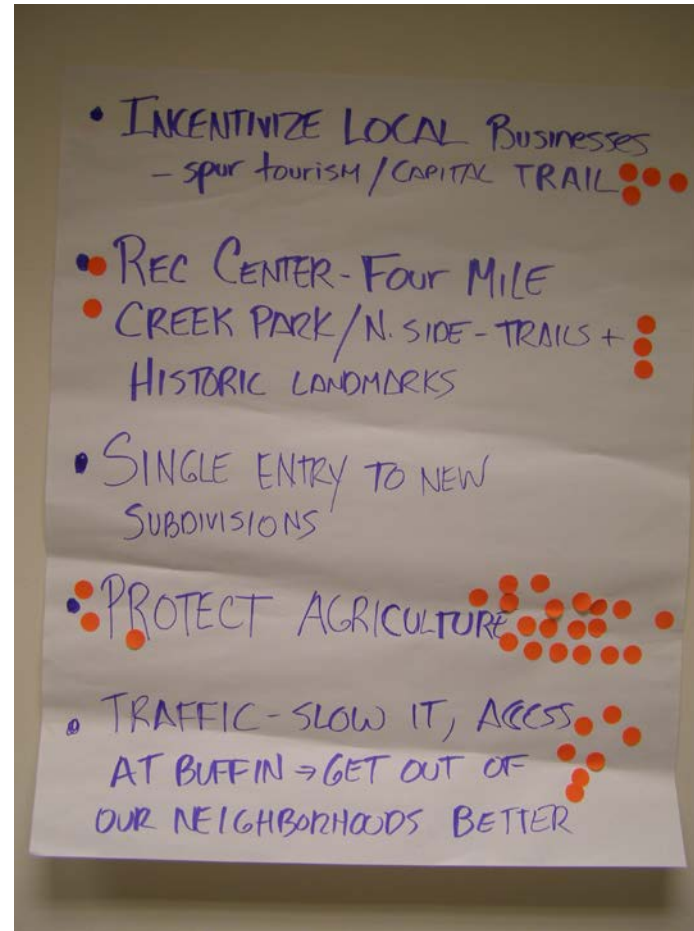 • INCENTIVIZE LOCAL Businesses
- spur tourism / CAPITAL TRAIL
• REC CENTER - Four MILE
CREEK PARK / N. SIDE - TRAILS +
HISTORIC LANDMARKS
• SINGLE ENTRY TO NEW
SUBDIVISIONS
• PROTECT AGRICULTURE
• TRAFFIC - SLOW IT, ACCESS
AT BUFFIN ⇒ GET OUT OF
OUR NEIGHBORHOODS BETTER